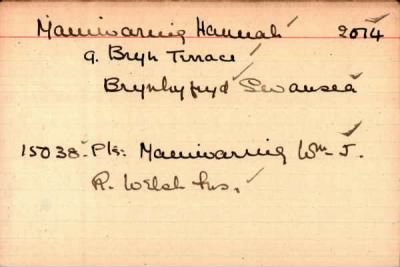 Mainwaring Hannah 2074
9. Bryn Terrace
Brynhyfryd Swansea
15038 - Pte: Mainwaring Wm J.
R. Welsh Fus.